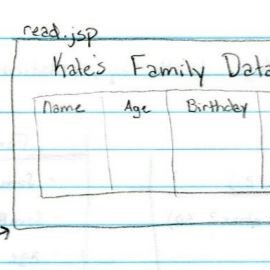 read.jsp
Kate's Family Data
Name Age Birthday